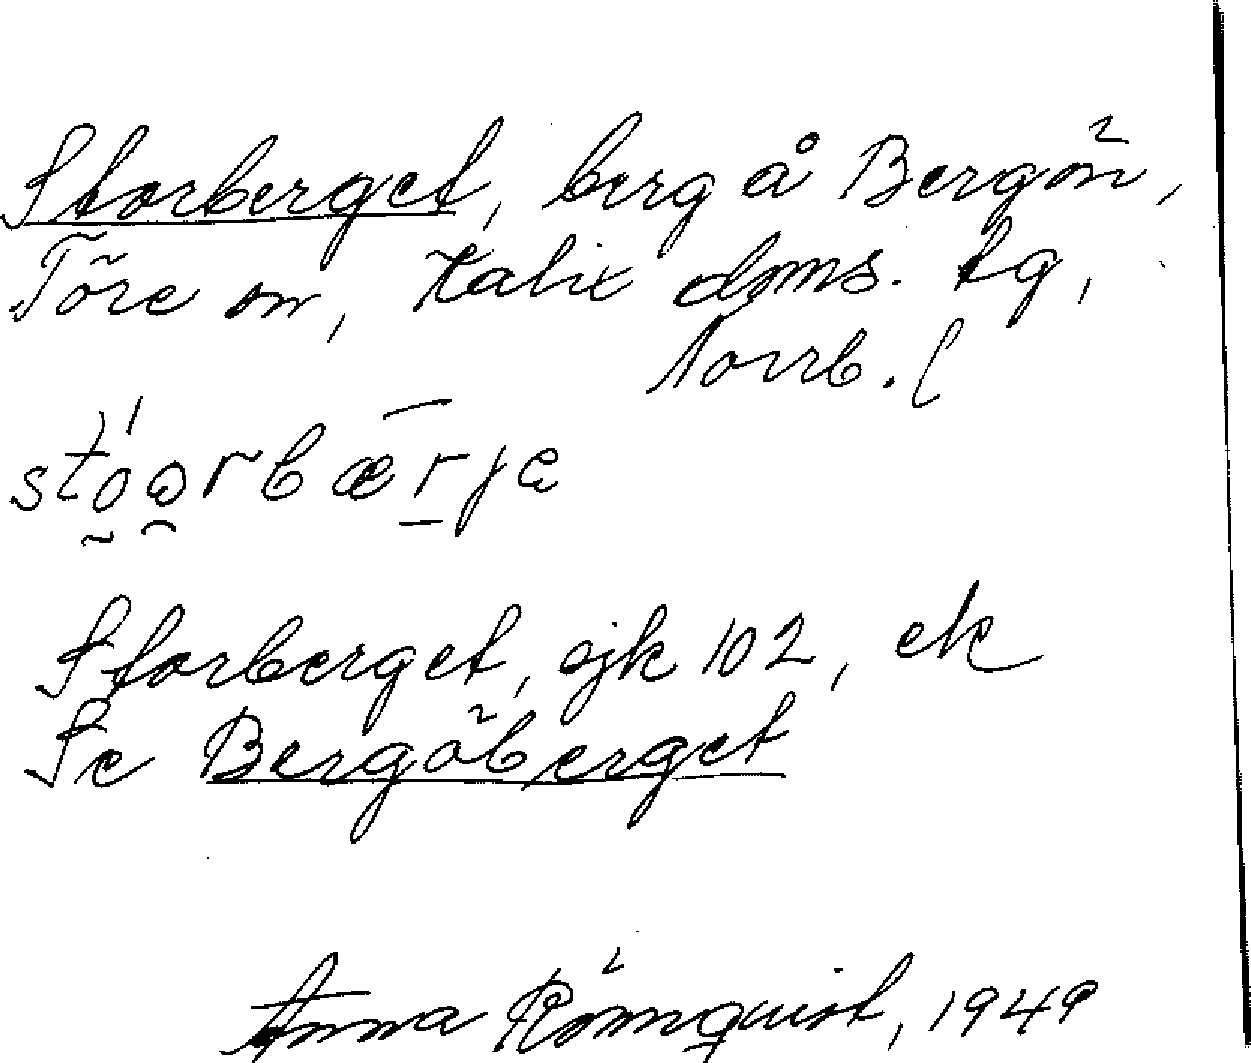 Storberget, berg å Bergön,
Töre sn, Kalix doms. tg,
Norrb. l
stóərbærjɛ
Storberget, ejk 102, ek
Se Bergöberget
Anna Römquist, 1949